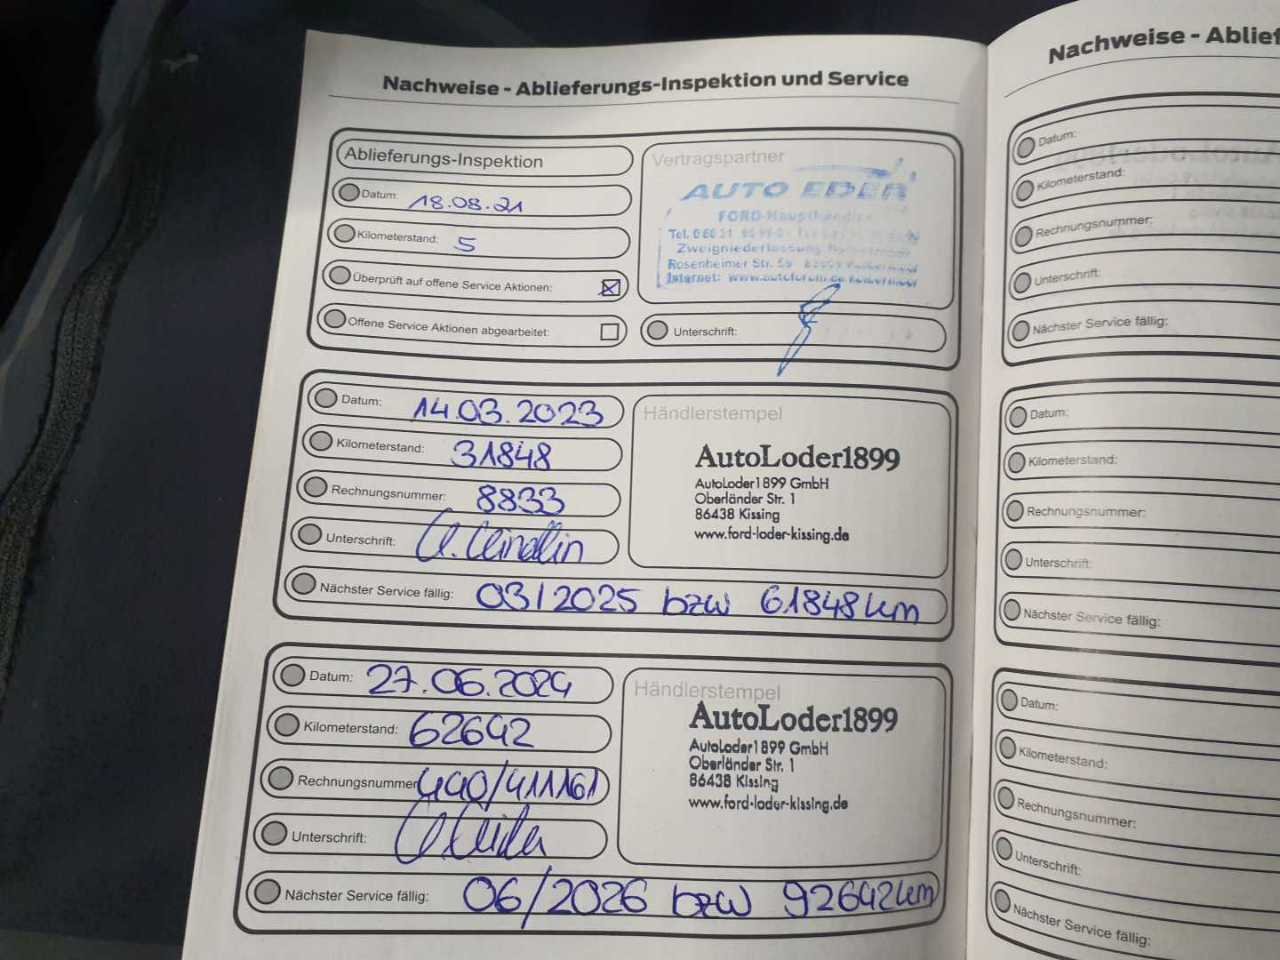 Nachweise - Ablieferungs-Inspektion und Service
Ablieferungs-Inspektion
Datum: 18.08.21
Kilometerstand: 5
Überprüft auf offene Service Aktionen:
Offene Service Aktionen abgearbeitet:
Vertragspartner
AUTO EDER
FORD-Haupthändler
Tel.
Zweigniederlassung
Rosenheimer Str. 59
Internet: www.autoforum.de
Unterschrift:
Datum: 14.03.2023
Kilometerstand: 31848
Rechnungsnummer: 8833
Unterschrift:
Händlerstempel
AutoLoder1899
AutoLoder1899 GmbH
Oberländer Str. 1
86438 Kissing
www.ford-loder-kissing.de
Nächster Service fällig: 03/2025 bzw 61848 km
Datum: 27.06.2024
Kilometerstand: 62642
Rechnungsnummer 440/411161
Unterschrift:
Händlerstempel
AutoLoder1899
AutoLoder1899 GmbH
Oberländer Str. 1
86438 Kissing
www.ford-loder-kissing.de
Nächster Service fällig: 06/2026 bzw 92642 km
Nachweise - Ablief
Datum:
Kilometerstand:
Rechnungsnummer:
Unterschrift:
Nächster Service fällig:
Datum:
Kilometerstand:
Rechnungsnummer:
Unterschrift:
Nächster Service fällig:
Datum:
Kilometerstand:
Rechnungsnummer:
Unterschrift:
Nächster Service fällig: